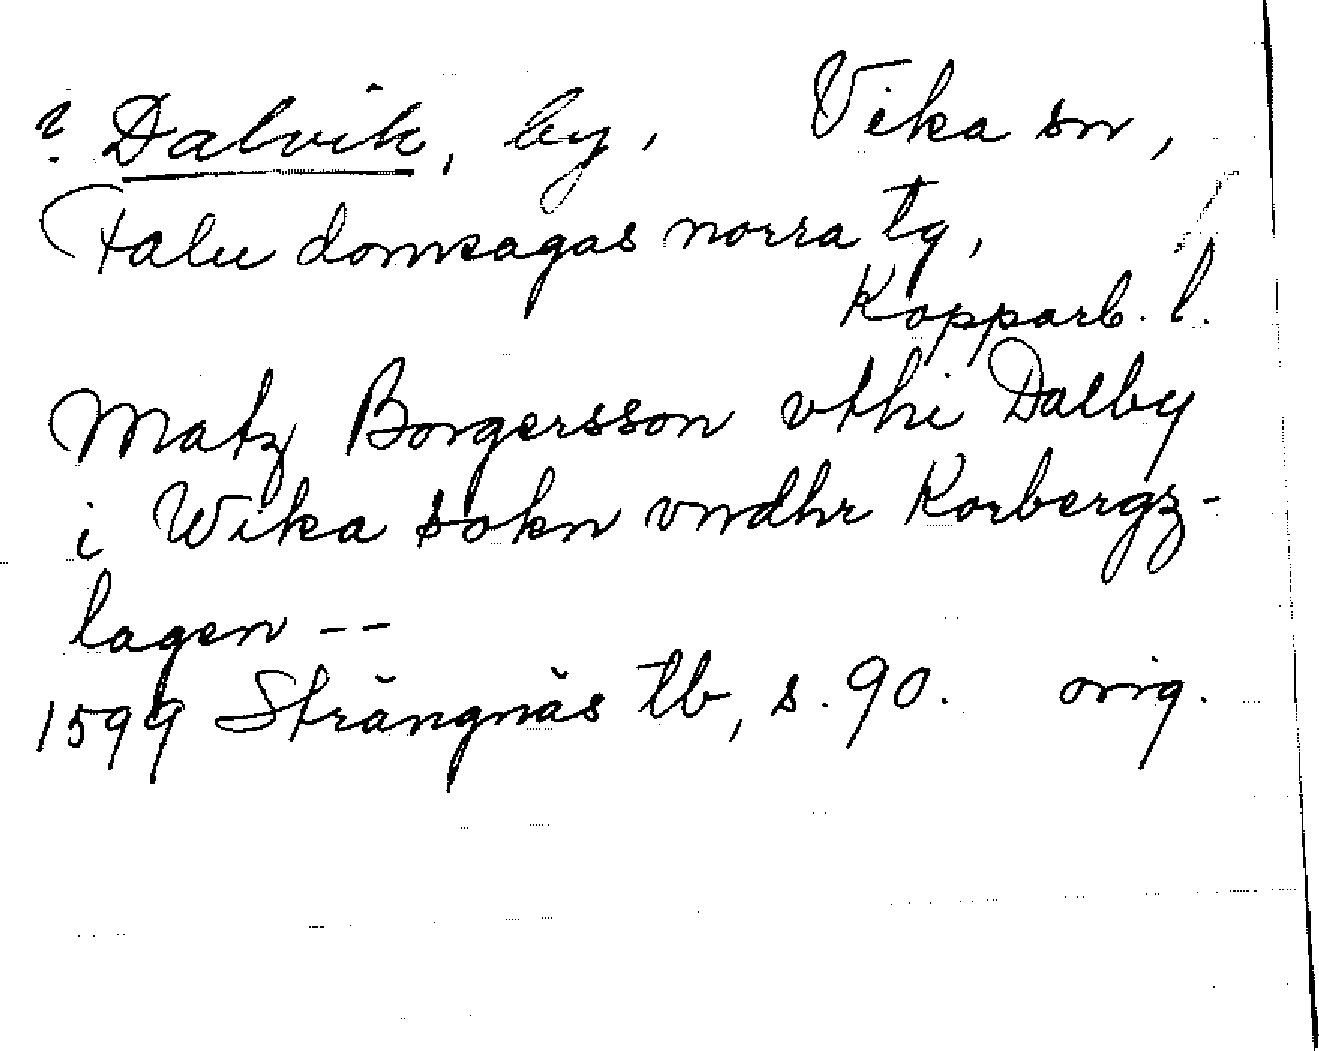 ? Dalvik, by, Vika sn,
Falu domsagas norra tg,
Kopparb. l.
Matz Borgersson vthi Dalby
i Wika sokn vndhr Korbergz-
lagen --
1599 Strängnäs tb, s. 90. orig.